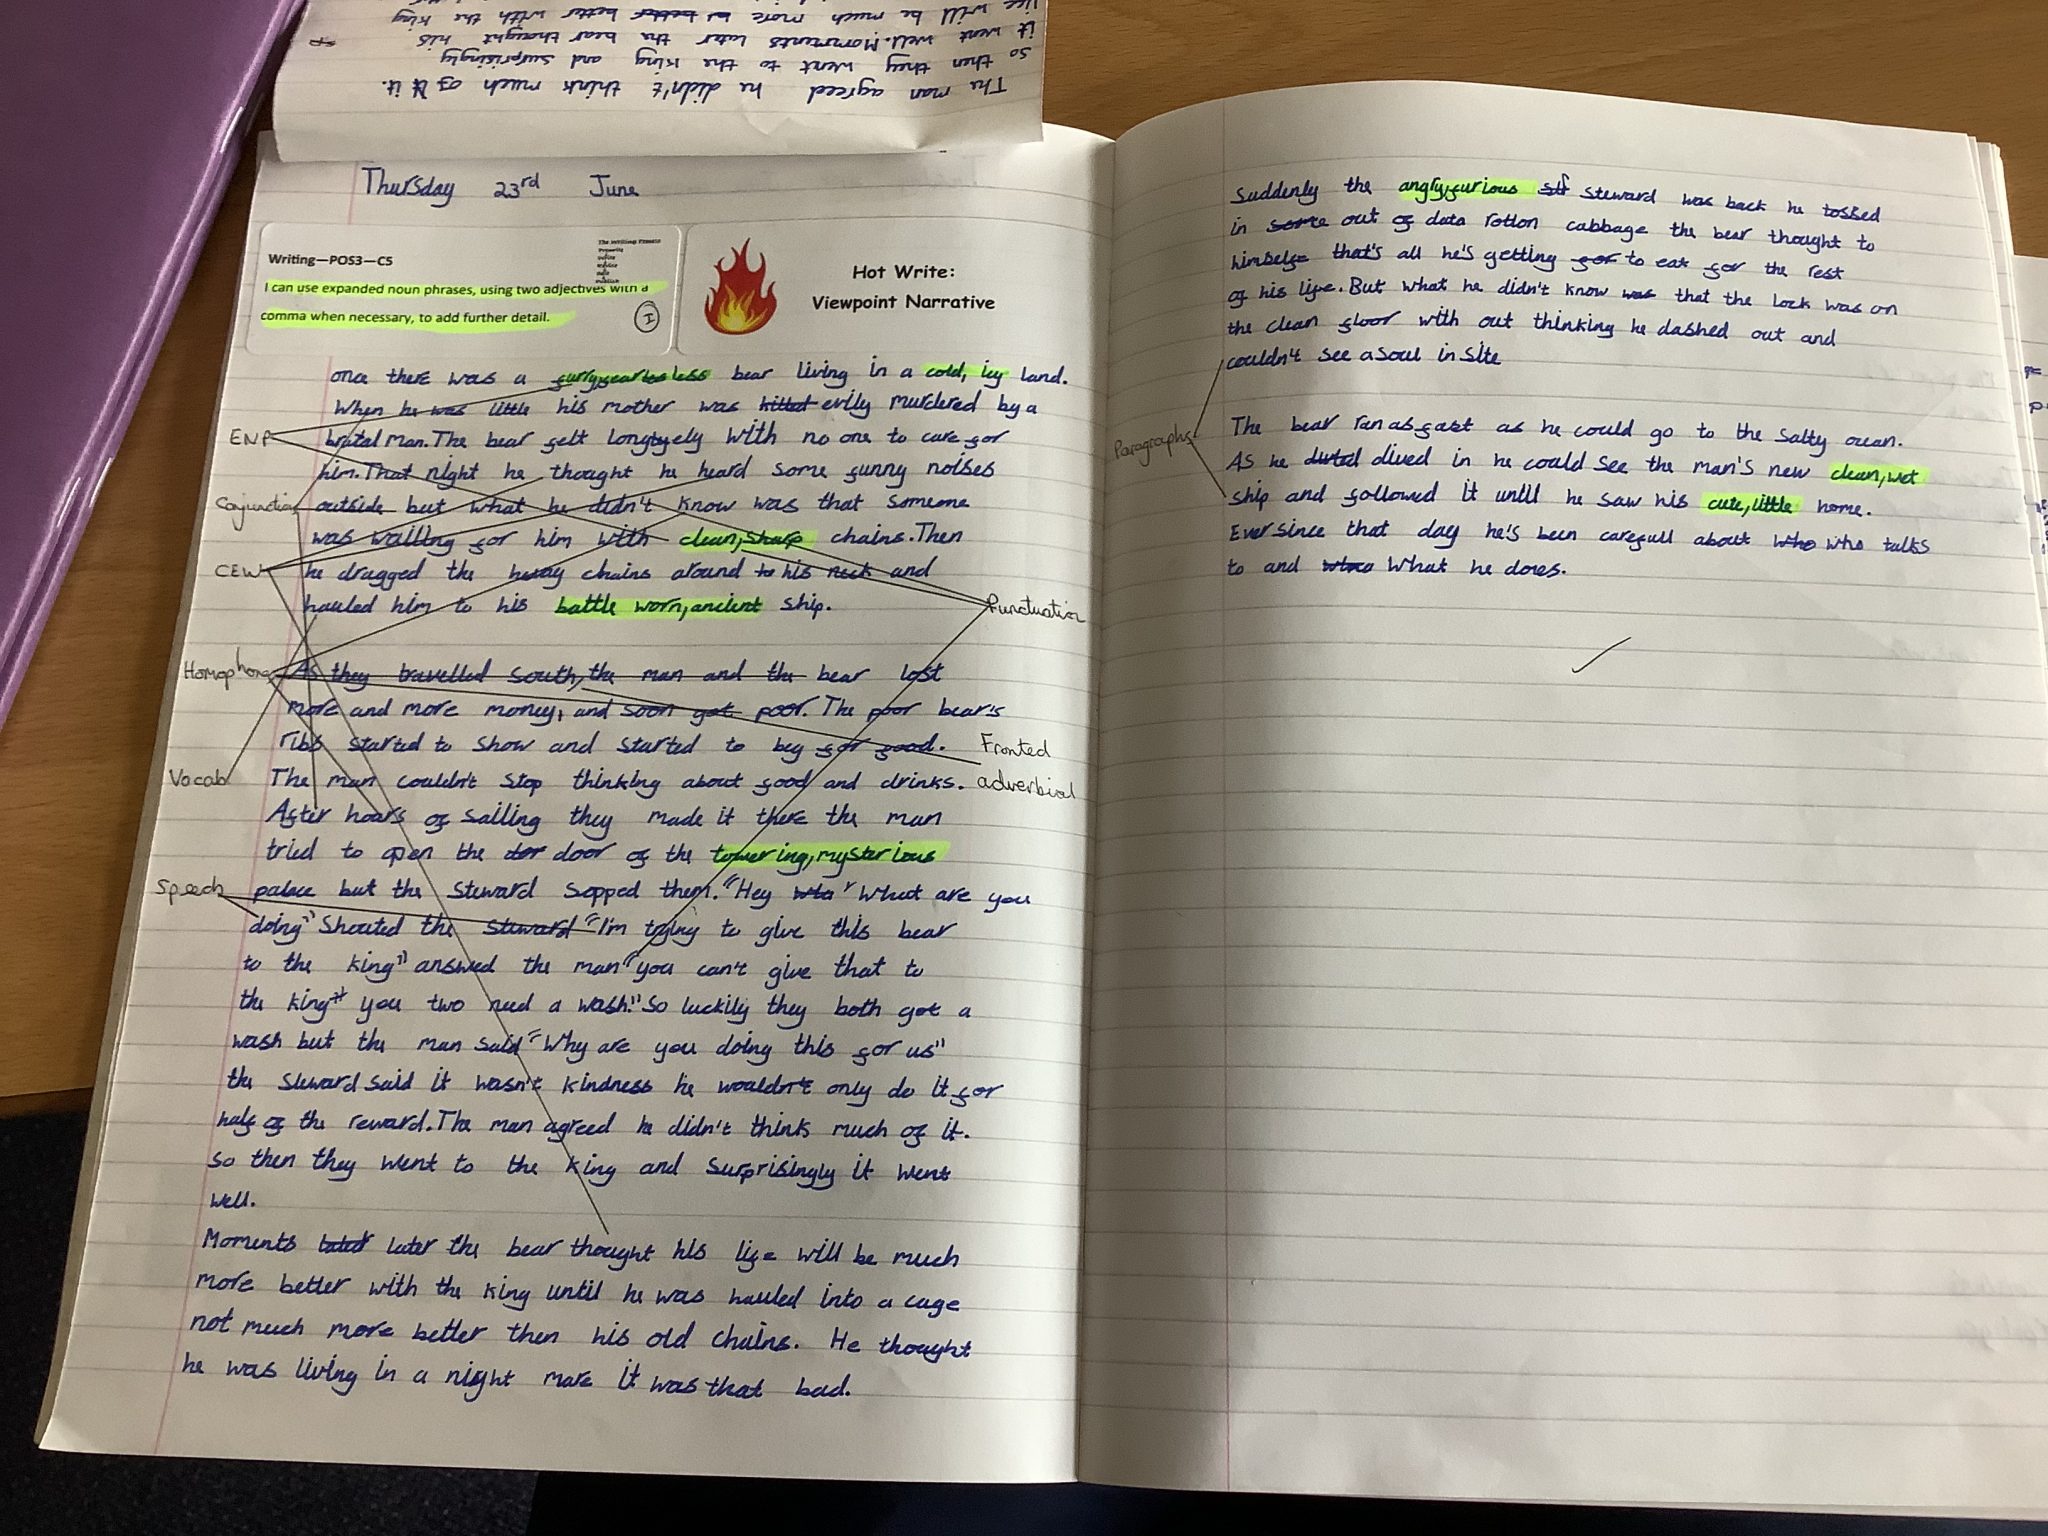 The man agreed he didn't think much of it.
so then they went to the king and surprisingly
it went well. Momments later the bear thought his
life will be much more better with the king
sp
Thursday 23rd June
Writing—POS3—C5
The Writing Process
I can use expanded noun phrases, using two adjectives with a
comma when necessary, to add further detail.
I
Hot Write:
Viewpoint Narrative
once there was a furry, bear living in a cold, icy land.
When he was little his mother was killed evily murdered by a
brutal man. The bear felt with no one to care for
him. That night he thought he heard some funny noises
outside but what he didn't know was that someone
was waiting for him with clean, sharp chains. Then
he dragged the chains around his neck and
hauled him to his battle worn, ancient ship.
As they travelled south, the man and the bear lost
more and more money, and soon got poor. The poor bear's
ribs started to show and started to beg for food.
The man couldn't stop thinking about food and drinks.
After hours of sailing they made it there the man
tried to open the dor door of the towering, mysterious
palace but the steward sopped them. "Hey What are you
doing" Shouted the steward "I'm trying to give this bear
to the king" answed the man "you can't give that to
the king" you two need a wash." So luckily they both got a
wash but the man said "Why are you doing this for us"
the steward said it wasn't kindness he wouldn't only do it for
half of the reward. The man agreed he didn't think much of it.
so then they went to the king and surprisingly it went
well.
Moments later the bear thought his life will be much
more better with the king until he was hauled into a cage
not much more better then his old chains. He thought
he was living in a night mare it was that bad.
ENP
Conjunction
CEW
Homophone
Vocab
Speech
Punctuation
Fronted
adverbial
Suddenly the angry, furious steward was back he tossed
in some out of data rotton cabbage the bear thought to
himself that's all he's getting for to eat for the rest
of his life. But what he didn't know was that the lock was on
the clean floor with out thinking he dashed out and
couldn't see a soul in site
Paragraphs
The bear ran as fast as he could go to the salty ocean.
As he dived in he could see the man's new clean, wet
ship and followed it until he saw his cute, little home.
Ever since that day he's been carefull about who who talks
to and What he does.